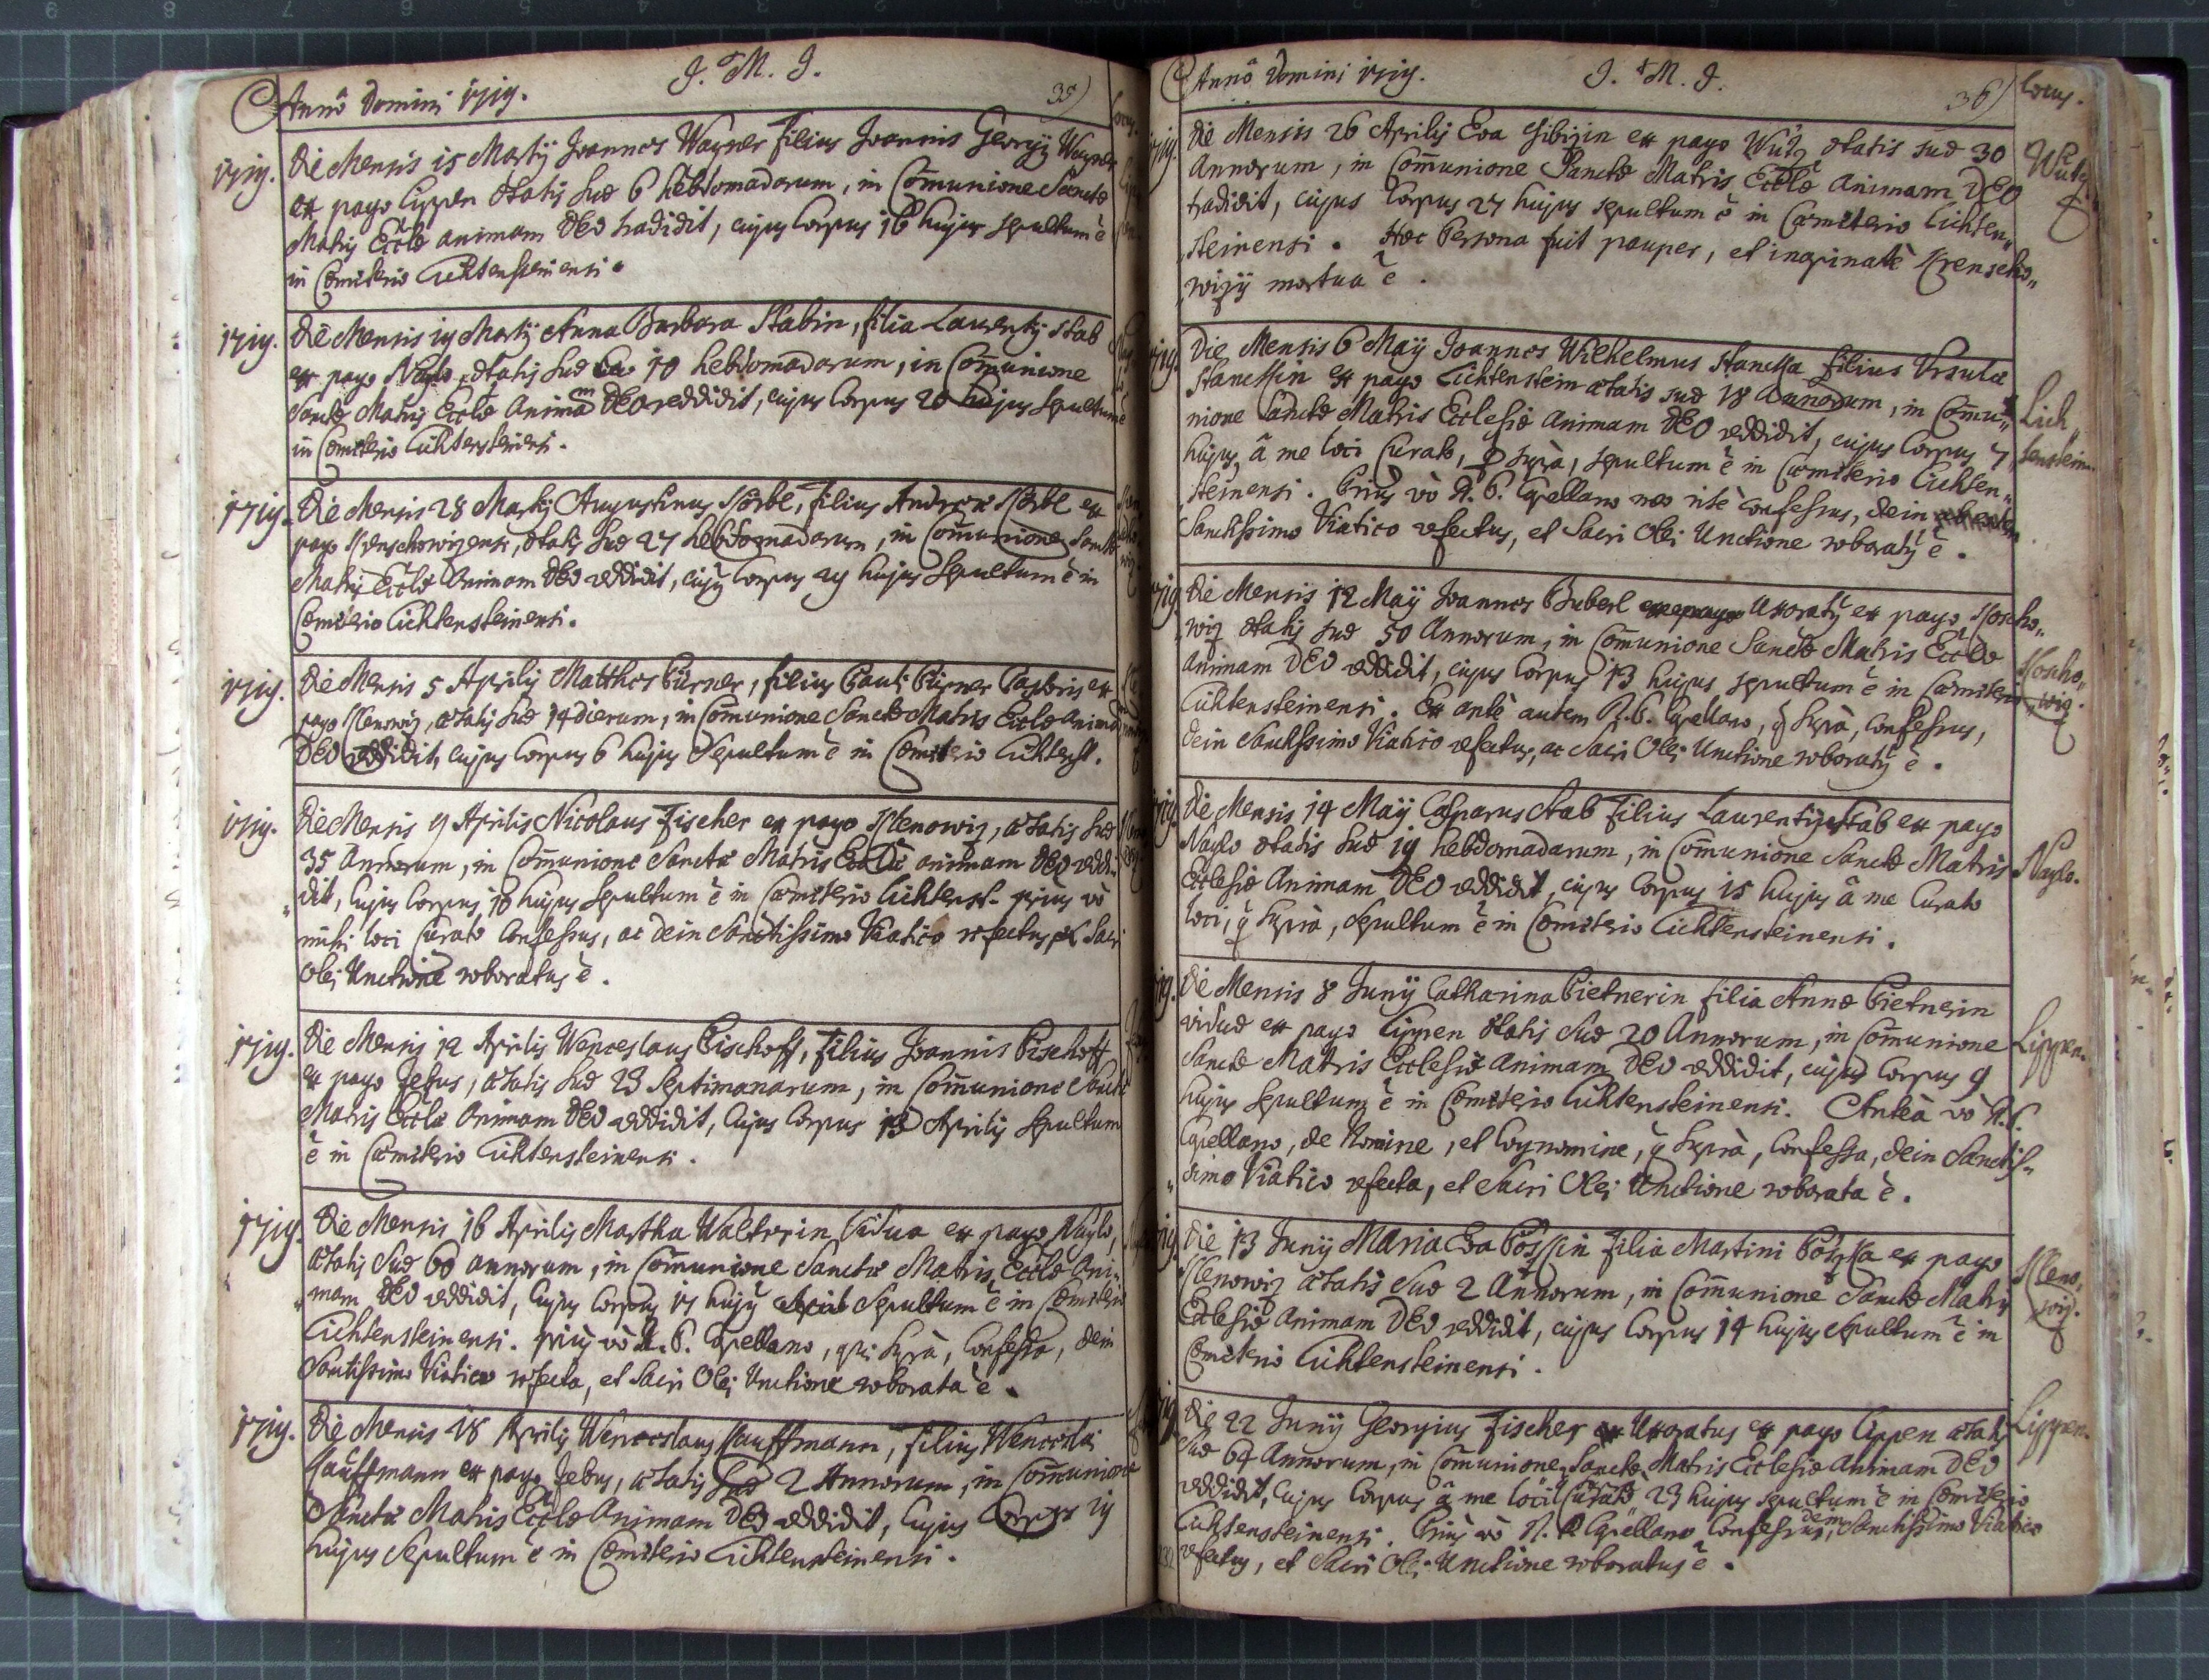 J. M. J.
Annô Domini 1719.
35)
Locus.
1719.
Die Mensis 15 Martij Joannes Wagner Filius Joannis Georgij Wagner
ex pago Lippen ætatis suæ 6 hebdomadarum, in Comunione Sanctæ
Matris Eccłæ animam DEO tradidit, cujus Corpus 16 hujus sepultum ẽ
in Cæmiterio Lichtensteinensi.
1719.
Die Mensis 19 Martij Anna Barbara Stabin, filia Laurentij Stab
ex pago Naglo ætatis suæ 10 hebdomadarum, in Com̃unione
Sanctæ Matris Eccłæ Animam DEO reddidit, cujus Corpus 20 hujus sepultum ẽ
in Cæmiterio Lichtensteinensi.
1719.
Die Mensis 28 Martij Augustinus Körbl, Filius Andreæ Körbl ex
pago Krenschowizensi, ætatis suæ 27 hebdomadarum, in Com̃unione Sanctæ
Matris Eccłæ Animam DEO reddidit, cujus Corpus 29 hujus sepultum ẽ in
Cæmiterio Lichtensteinensi.
1719.
Die Mensis 5 Aprilis Matthæs Pürner, filius Pauli Pürner Pastoris ex
pago Klenowiz, ætatis suæ 14 dierum, in Com̃unione Sanctæ Matris Eccłæ Animã
DEO reddidit, cujus Corpus 6 hujus Sepultum ẽ in Cæmiterio Lichtenst.
1719.
Die Mensis 9 Aprilis Nicolaus Fischer ex pago Klenowiz, ætatis suæ
35 Annorum, in Com̃unione Sanctæ Matris Eccłæ animam DEO reddi„
„dit, Cujus Corpus 10 hujus sepultum ẽ in Cæmiterio Lichtenst. prius vò
mihi loci Curato Confessus, ac dein Sanctissimo Viatico refectus, et Sacri
Olei Unctione roboratus ẽ.
1719.
Die Mensis 12 Aprilis Wenceslaus Pischoff, Filius Joannis Pischoff
ex pago Jebus, ætatis suæ 23 Septimanarum, in Com̃unione Sanctæ
Matris Eccłæ Animam DEO reddidit, Cujus Corpus 13 Aprilis sepultum
ẽ in Cæmiterio Lichtensteinensi.
1719.
Die Mensis 16 Aprilis Martha Walterin Vidua ex pago Naglo,
ætatis Suæ 60 annorum, in Com̃unione Sanctæ Matris Eccłæ Ani„
„mam DEO reddidit, Cujus Corpus 17 hujus Sepultum ẽ in Cæmiterio
Lichtensteinensi. prius vò R. P. Capellano, qui Suprà, Confessa, dein
Sanctissimo Viatico refecta, et Sacri Olei Unctione roborata ẽ.
1719.
Die Mensis 18 Aprilis Wenceslaus Kauffmann, filius Wenceslai
Kauffmann ex pago Jebus, ætatis Suæ 2 Annorum, in Com̃unione
Sanctæ Matris Eccłæ Animam DEO reddidit, Cujus Corpus 19
hujus Sepultum ẽ in Cæmiterio Lichtensteinensi.
J. M. J.
Annô Domini 1719.
36)
Locus.
Die Mensis 26 Aprilis Eva ex pago Wutz ætatis suæ 30
Annorum, in Com̃unione Sanctæ Matris Eccłæ Animam DEO
tradidit, cujus Corpus 27 hujus sepultum ẽ in Cæmiterio Lichten„
„steinensi. Hæc Persona fuit pauper, et inopinatè Krenscho„
„wizij mortua ẽ.
Wutz
Die Mensis 6 Maij Joannes Wilhelmus StancKa Filius Ursulæ
StancKin ex pago Lichtenstein ætatis suæ 18 Annorum, in Com̃u„
nione Sanctæ Matris Ecclesiæ Animam DEO reddidit, cujus Corpus 7
hujus, â me loci Curato, q̃ suprà, sepultum ẽ in Cæmiterio Lichten„
steinensi. Prius vò R. P. Capellano meo ritè Confessus, dein
Sanctissimo Viatico refectus, et Sacri Olei Unctione roboratus ẽ.
Lich„
tenstein
Die Mensis 12 Maij Joannes Buberl Uxoratus ex pago Koscho„
„wiz ætatis suæ 50 Annorum, in Com̃unione Sanctæ Matris Eccłæ
Animam DEO reddidit, cujus Corpus 13 hujus sepultum ẽ in Cæmiterio
Lichtensteinensi. Ex antè autem R. P. Capellano, q̃ suprà, Confessus,
dein Sanctissimo Viatico refectus, ac Sacri Olei Unctione roboratus ẽ.
Koscho„
„wiz.
Die Mensis 14 Maij Casparus Stab Filius Laurentij Stab ex pago
Naglo ætatis suæ 19 hebdomadarum, in Com̃unione Sanctæ Matris
Ecclesiæ Animam DEO reddidit, cujus Corpus 15 hujus â me Curato
loci, q̃ suprà, Sepultum ẽ in Cæmiterio Lichtensteinensi.
Naglo.
Die Mensis 8 Junij Catharina Pietnerin filia Annæ Pietnerin
viduæ ex pago Lippen ætatis Suæ 20 Annorum, in Com̃unione
Sanctæ Matris Ecclesiæ Animam DEO reddidit, cujus Corpus 9
hujus Sepultum ẽ in Cæmiterio Lichtensteinensi. Anteà vò R. P.
Capellano, de Nomine, et Cognomine, q̃ Suprà, Confessa, dein Sanctis„
„simo Viatico refecta, et Sacri Olei Unctione roborata ẽ.
Lippen.
Die 13 Junij Maria Eva PösKin Filia Martini PöszKa ex pago
Klenowiz ætatis Suæ 2 Annorum, in Com̃unione Sanctæ Matris
Ecclesiæ Animam DEO reddidit, cujus Corpus 14 hujus Sepultum ẽ in
Cæmiterio Lichtensteinensi.
Kleno„
wiz.
Die 22 Junij Georgius Fischer Uxoratus ex pago Lippen ætatis
Suæ 64 Annorum, in Comunione Sanctæ Matris Ecclesiæ Animam DEO
reddidit, Cujus Corpus â me loci Curato 23 hujus sepultum ẽ in Cæmiterio
Lichtensteinensi. Prius vò R. P. Capellano Confessus, dein Sanctissimo Viatico
refectus, et Sacri Olei Unctione roboratus ẽ.
Lippen.